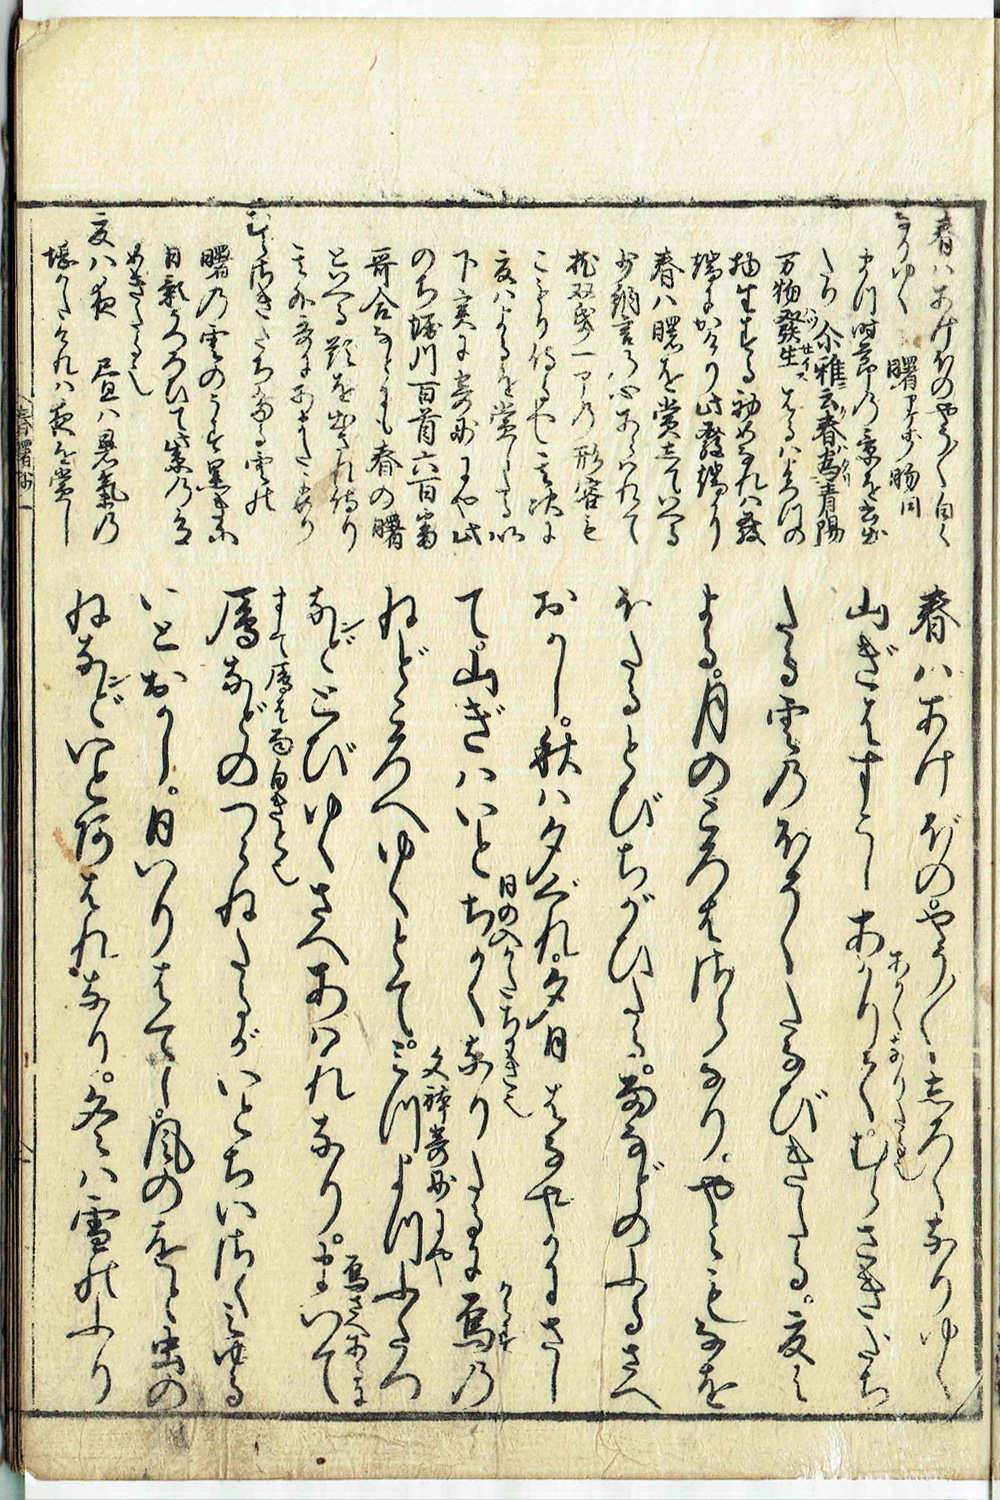 春はあけぼの
なりゆく
曙 アケボノ 暘同
まづ時節の景を云出
たり 尓雅ニ云春為青陽
万物發生 はるはよろづの
物生ずる初めなれば發
端にかけり此發端より
春は曙を賞していへる
少納言の心あらはれて
枕双帋一部の形容も
こもり侍るにや 其次に
夏はよるを賞したる以
下寒に
のち堀川百首六百番
哥合などにも春の曙
といへる題を出され侍り
むらさきだちたる雲の
曙の雲のうす黒きに
日影うつろひて紫の立
めきたる也
夏は夜 昼は暑気の
堪がたければ夜を賞し
春曙抄一
春はあけぼの。やう〳〵しろくなりゆく
山ぎはすこしあかりて。むらさきだち
あかくなりたる也
たる雲のほそくたなびきたる。夏は
よる。月のころはさらなり。やみもなを
ほたるとびちがひたる。雨などのふるさへ
おかし。秋は夕ぐれ。夕日はなやかにさし
日の入かたちかき也
て。山ぎはいとちかくなりたるに烏の
からす
ねどころへゆくとて。三つよつふたつ
文禅
などとびゆくさへあはれなり。まいて
烏さへあるに
すべて鴈は面白きと也
鴈などのつらねたるがいとちいさくみゆる
いとおかし。日いりはてゝ。風のをと虫の
ねなどいとあはれなり。冬は雪のふり